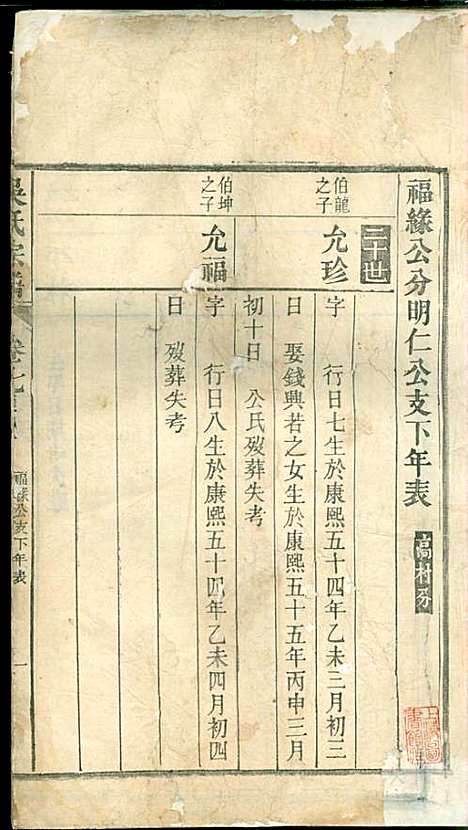 福緣公分明仁公支下年表 高村分
二十世
伯龍之子
允珍
字 行日七生於康熙五十四年乙未三月初三
日 娶錢興若之女生於康熙五十五年丙申三月
初十日 公氏歿葬失考
伯坤之子
允福
字 行日八生於康熙五十四年乙未四月初四
日 歿葬失考
吳氏宗譜
卷七
福緣公支下年表
一